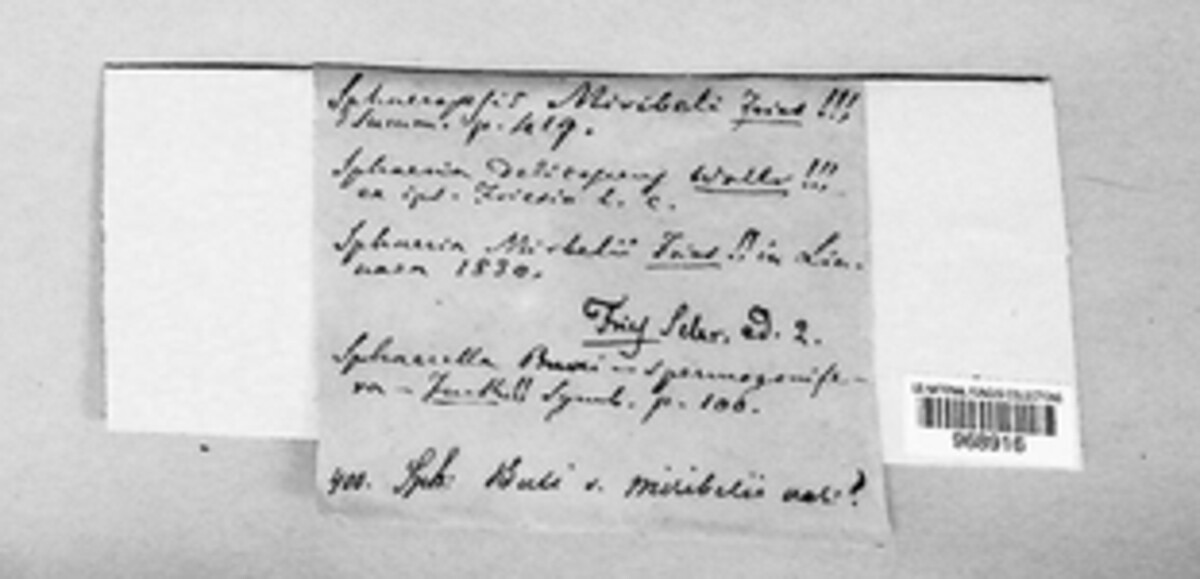 Sphaeropsis Miribeli Fries !!!
Summ. p. 419.
Sphaeria delitescens Wallr !!!
ex ips. Friesio l. c.
Sphaeria Mirbelii Fries !! in Lin-
naea 1830.
Fries Scler. ed. 2.
Sphaerella Buxi - spermogonife-
ra - Fuck!! Symb. p. 106.
400. Sph: Buxi v. miribelii var?
US NATIONAL FUNGUS COLLECTIONS
968916